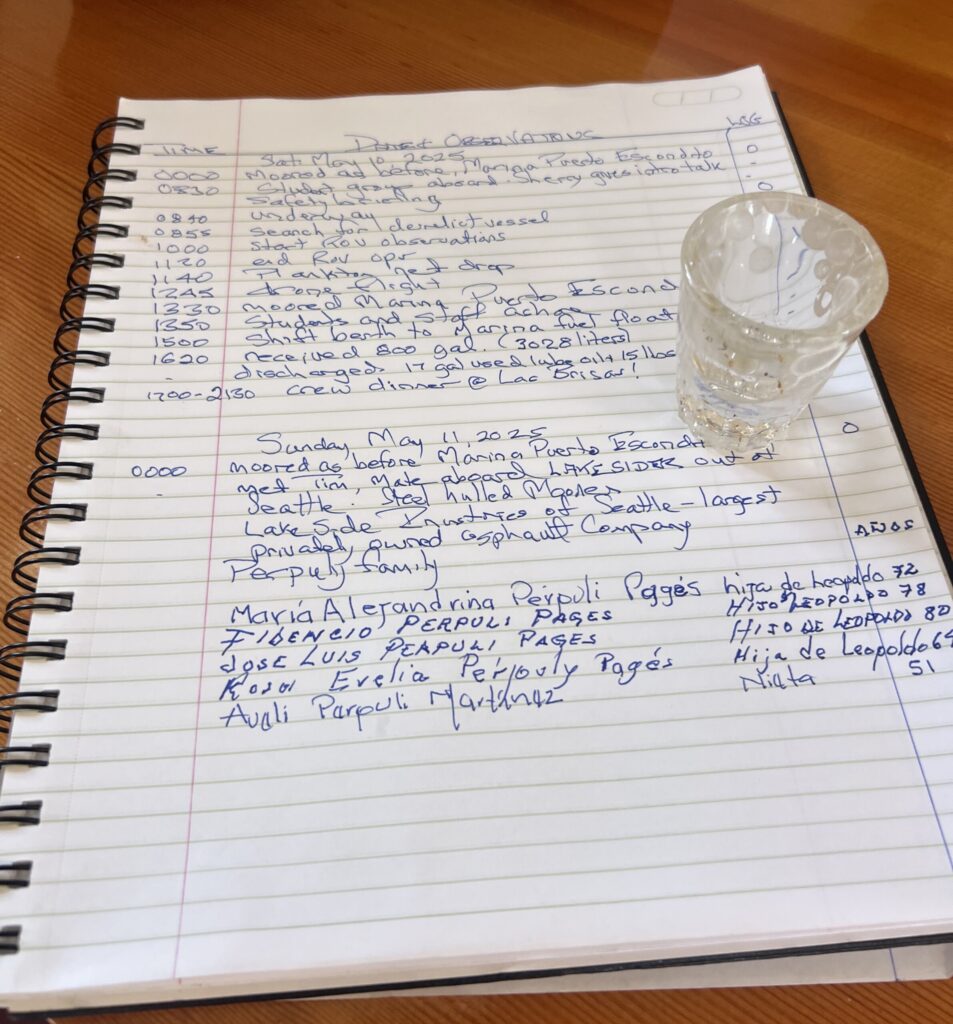 LOG
TIME OBSERVATIONS
Sat. May 10, 2025
0000 Moored as before, Marina Puerto Escondito 0
0830 Student group aboard. Sherry gives intro talk -
Safety briefing 0
0840 underway
0855 Search for derelict vessel
1000 Start ROV observations
1120 end ROV opr
1140 Plankton net drop
1245 drone flight
1330 moored Marina Puerto Escond
1350 Students and Staff
1500 Shift berth to Marina fuel float
1620 received 800 gal. (3028 liters)
- discharged 17 gal used lube oil + 15 lbs
1700-2130 Crew dinner @ Las Brisas!
Sunday May 11, 2025 0
0000 moored as before Marina Puerto Escondit
- met Tim, Mate aboard LAKESIDER out of
Seattle. Steel hulled
Lake Side Industries of Seattle - largest
privately owned asphalt Company
Perpuly family AÑOS
María Alejandrina Perpuli Pagés hija de Leopoldo 72
FIDENCIO PERPULI PAGES HIJO LEOPOLDO 78
JOSE LUIS PERPULI PAGES HIJO DE LEOPOLDO 80
Rosa Evelia Perpuly Pagés Hija de Leopoldo 64
Perpuli Martínez Nieta 51